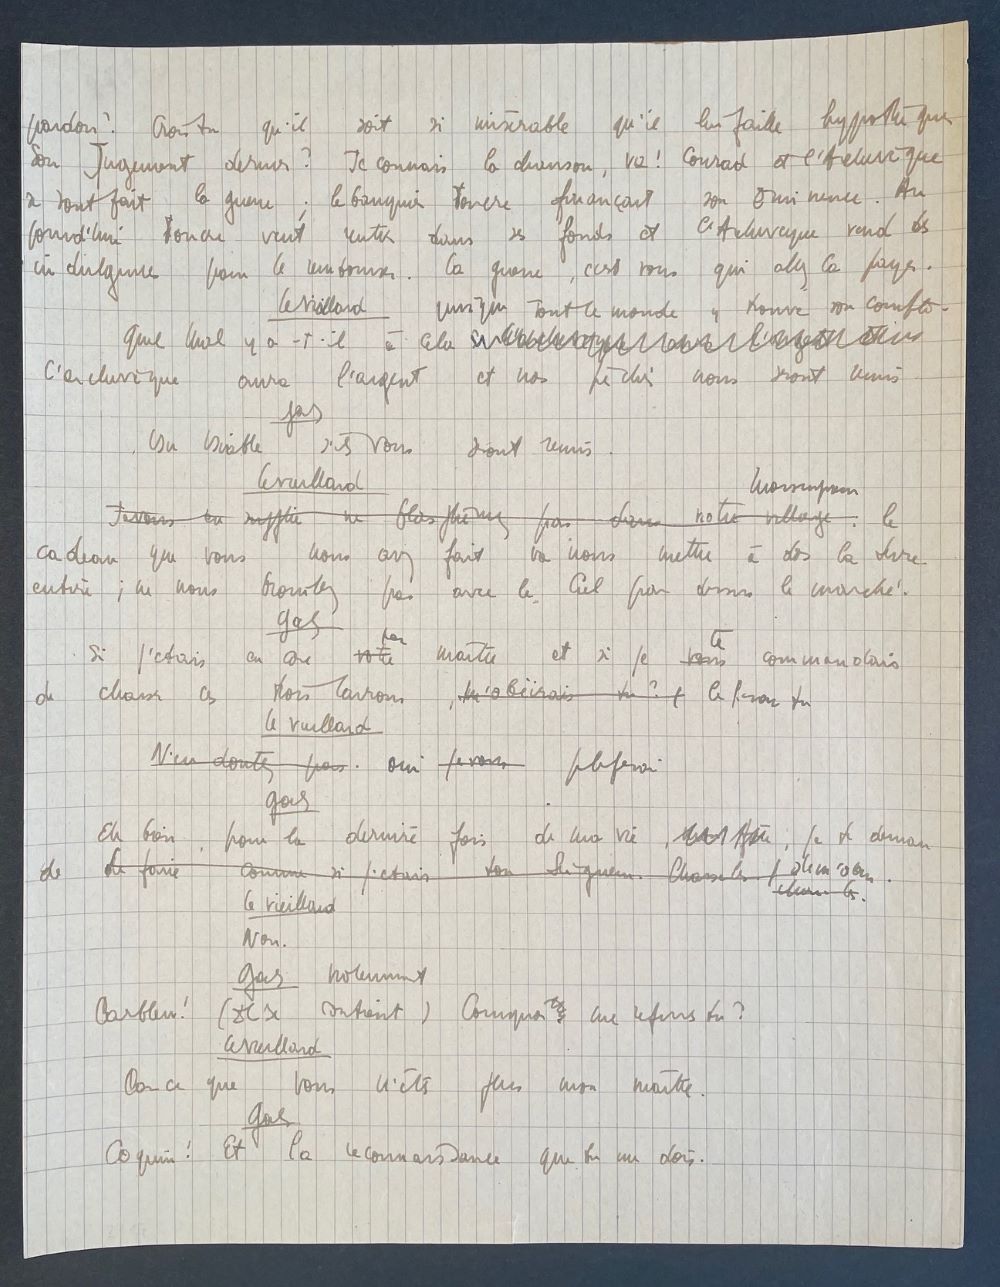 pardon? Crois-tu qu'il soit si misérable qu'il lui faille hypothéquer
son Jugement dernier? Je connais la chanson, va! Conrad et l'Archevêque
se sont fait la guerre ; le banquier Foucre finançait son Eminence. Au
jourd'hui Foucre veut rentrer dans ses fonds et l'Archevêque vend des
indulgences pour le rembourser. La guerre, c'est vous qui allez la payer.
Le Vieillard puisque Tout le monde y trouve son compte.
Quel mal y a-t-il à cela
L'archevêque aura l'argent et nos péchés nous seront remis
gœtz
Le vieillard
Monseigneur
ne blasphémez pas dans notre village. le
cadeau que vous nous avez fait va nous mettre à dos la terre
entière ; ne nous brouillez pas avec le Ciel par dessus le marché.
gœtz
Si j'étais encore votre ton maître et si je vous te commandais
de chasser ces trois larrons, m'obéirais-tu? le ferais tu
le vieillard
N'en doutez pas. oui je le ferai
gœtz
Eh bien, pour la dernière fois de ma vie, je te deman
de de faire comme si j'étais ton Seigneur. Chasse-les
le vieillard
Non.
gœtz violemment
Parbleu! (Il se contient) Pourquoi me refuses tu?
le vieillard
Parce que vous n'êtes plus mon maître.
gœtz
Coquin! Et la reconnaissance que tu me dois.